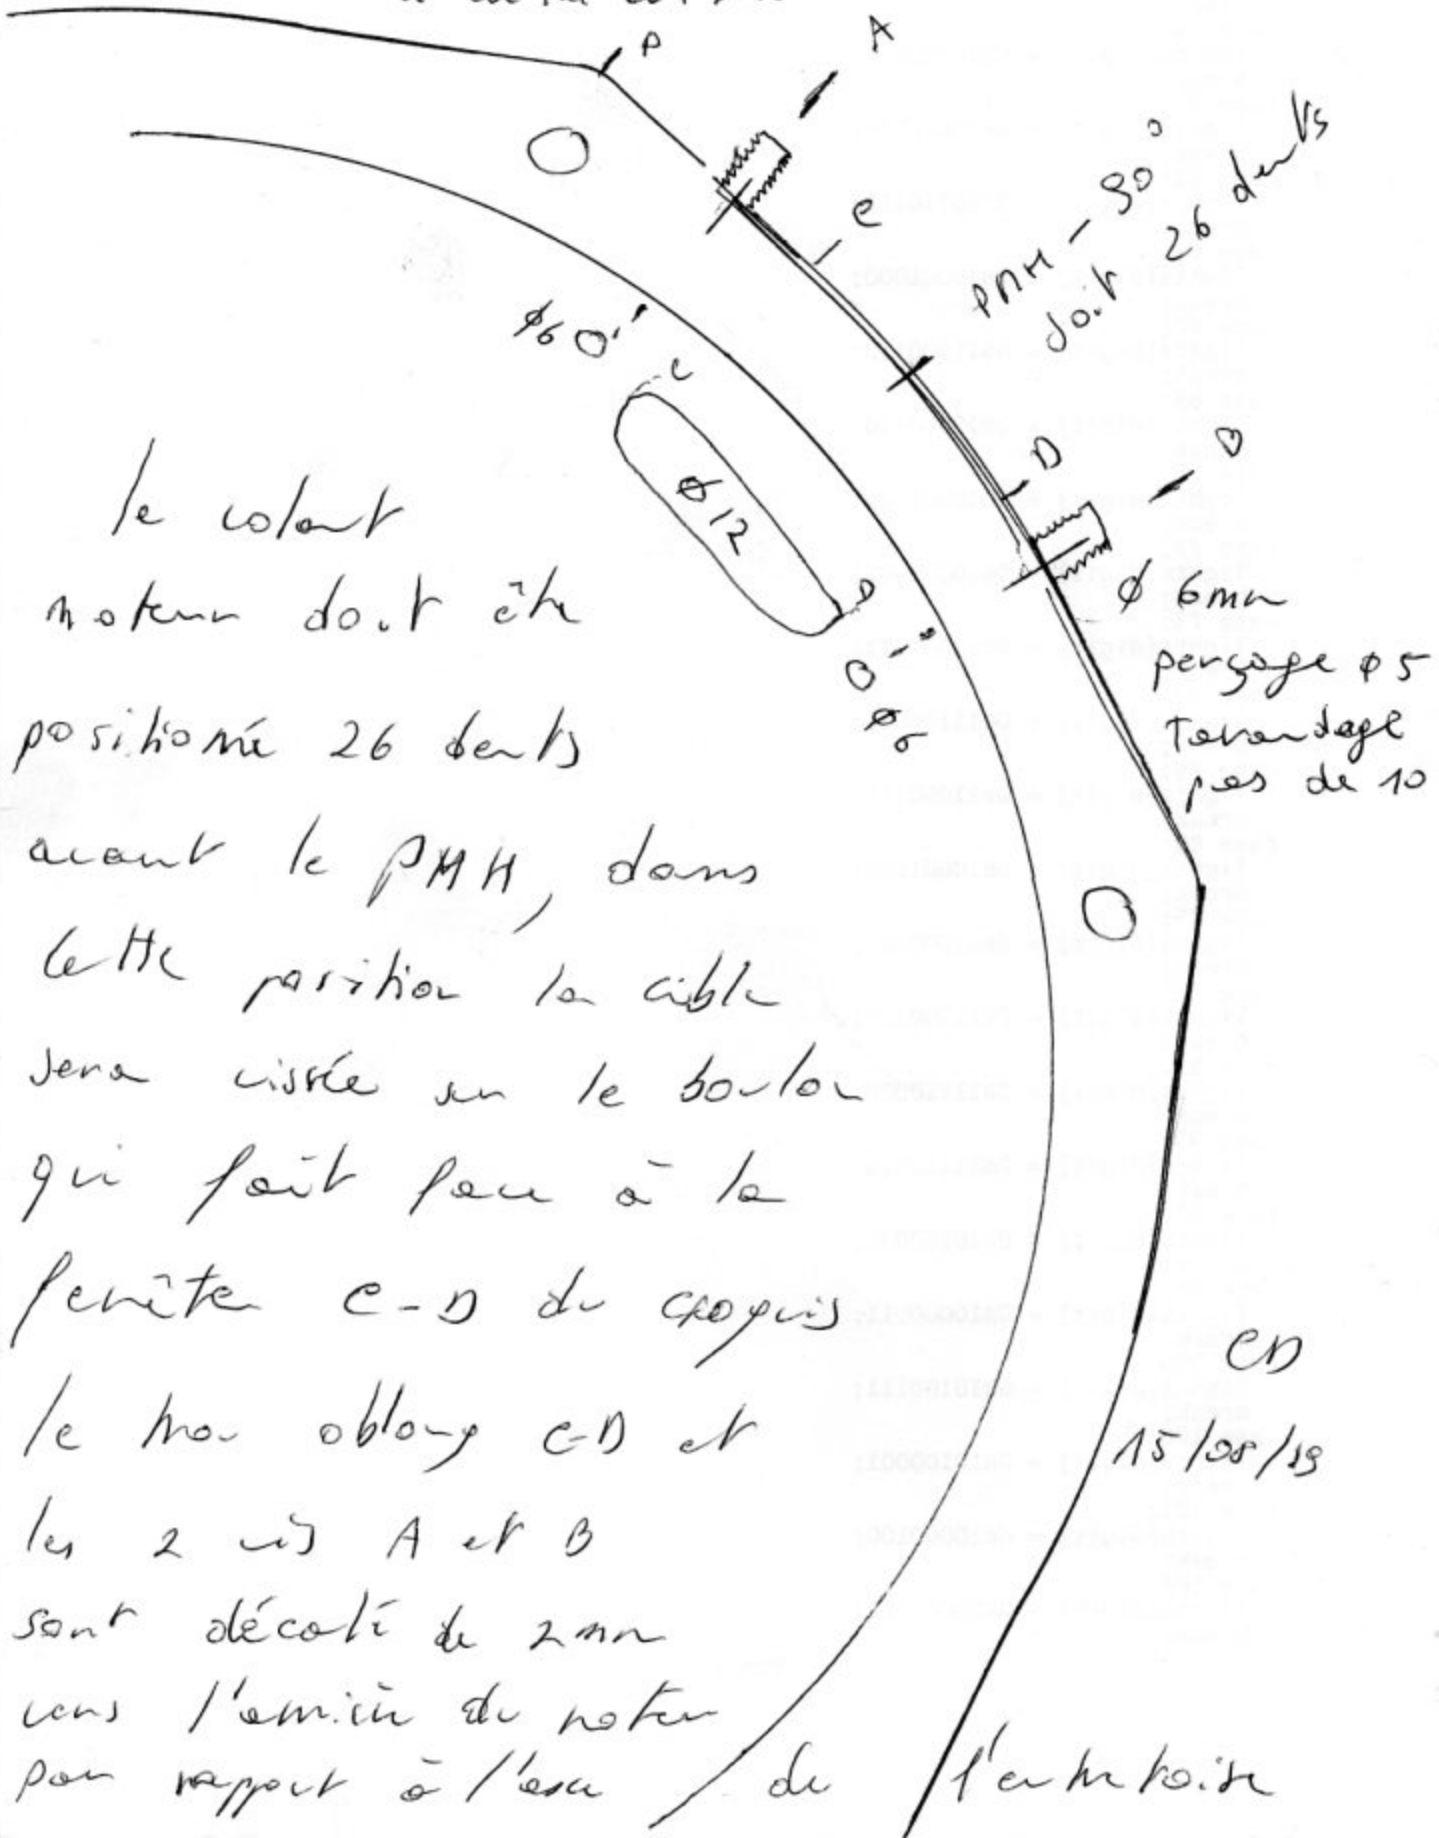 P
A
C
PMH - 90°
soit 26 dents
φ6
C
φ12
D
B
D
φ 6mm
perçage φ5
Tarandage
pas de 10
B
φ6
le volant
moteur doit être
positionné 26 dents
avant le PMH, dans
cette position la cible
sera vissée sur le boulon
qui fait face à la
fenêtre C-D du croquis
le trou oblong C-D et
les 2 vis A et B
sont décalé de 2mm
vers l'arrière du moteur
par rapport à l'axe de l'entretoise
CD
15/08/19